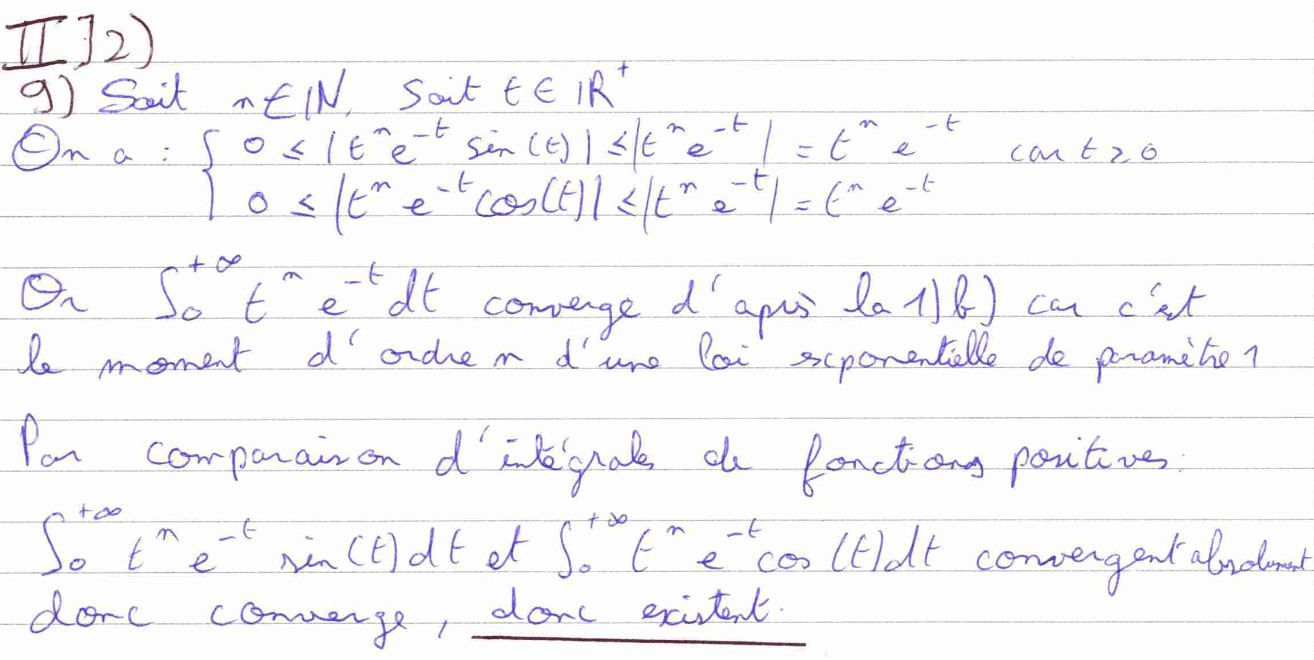 II]2)
g) Soit n∈ℕ, Soit t∈ℝ⁺
On a : { 0 ≤ |tⁿe⁻ᵗ sin(t)| ≤ |tⁿe⁻ᵗ| = tⁿ e⁻ᵗ car t≥0
0 ≤ |tⁿ e⁻ᵗ cos(t)| ≤ |tⁿ e⁻ᵗ| = tⁿ e⁻ᵗ
Or ∫₀^{+∞} tⁿ e⁻ᵗ dt converge d'après la 1)b) car c'est
le moment d'ordre n d'une loi exponentielle de paramètre 1
Par comparaison d'intégrales de fonctions positives:
∫₀^{+∞} tⁿ e⁻ᵗ sin(t)dt et ∫₀^{+∞} tⁿ e⁻ᵗ cos(t)dt convergent absolument
donc converge, donc existent.